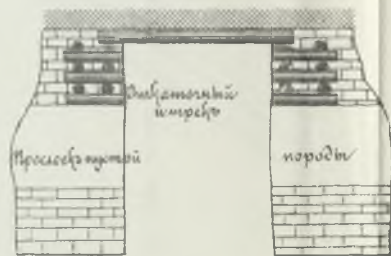 Откаточный
штрекъ
Прослоекъ пустой породы